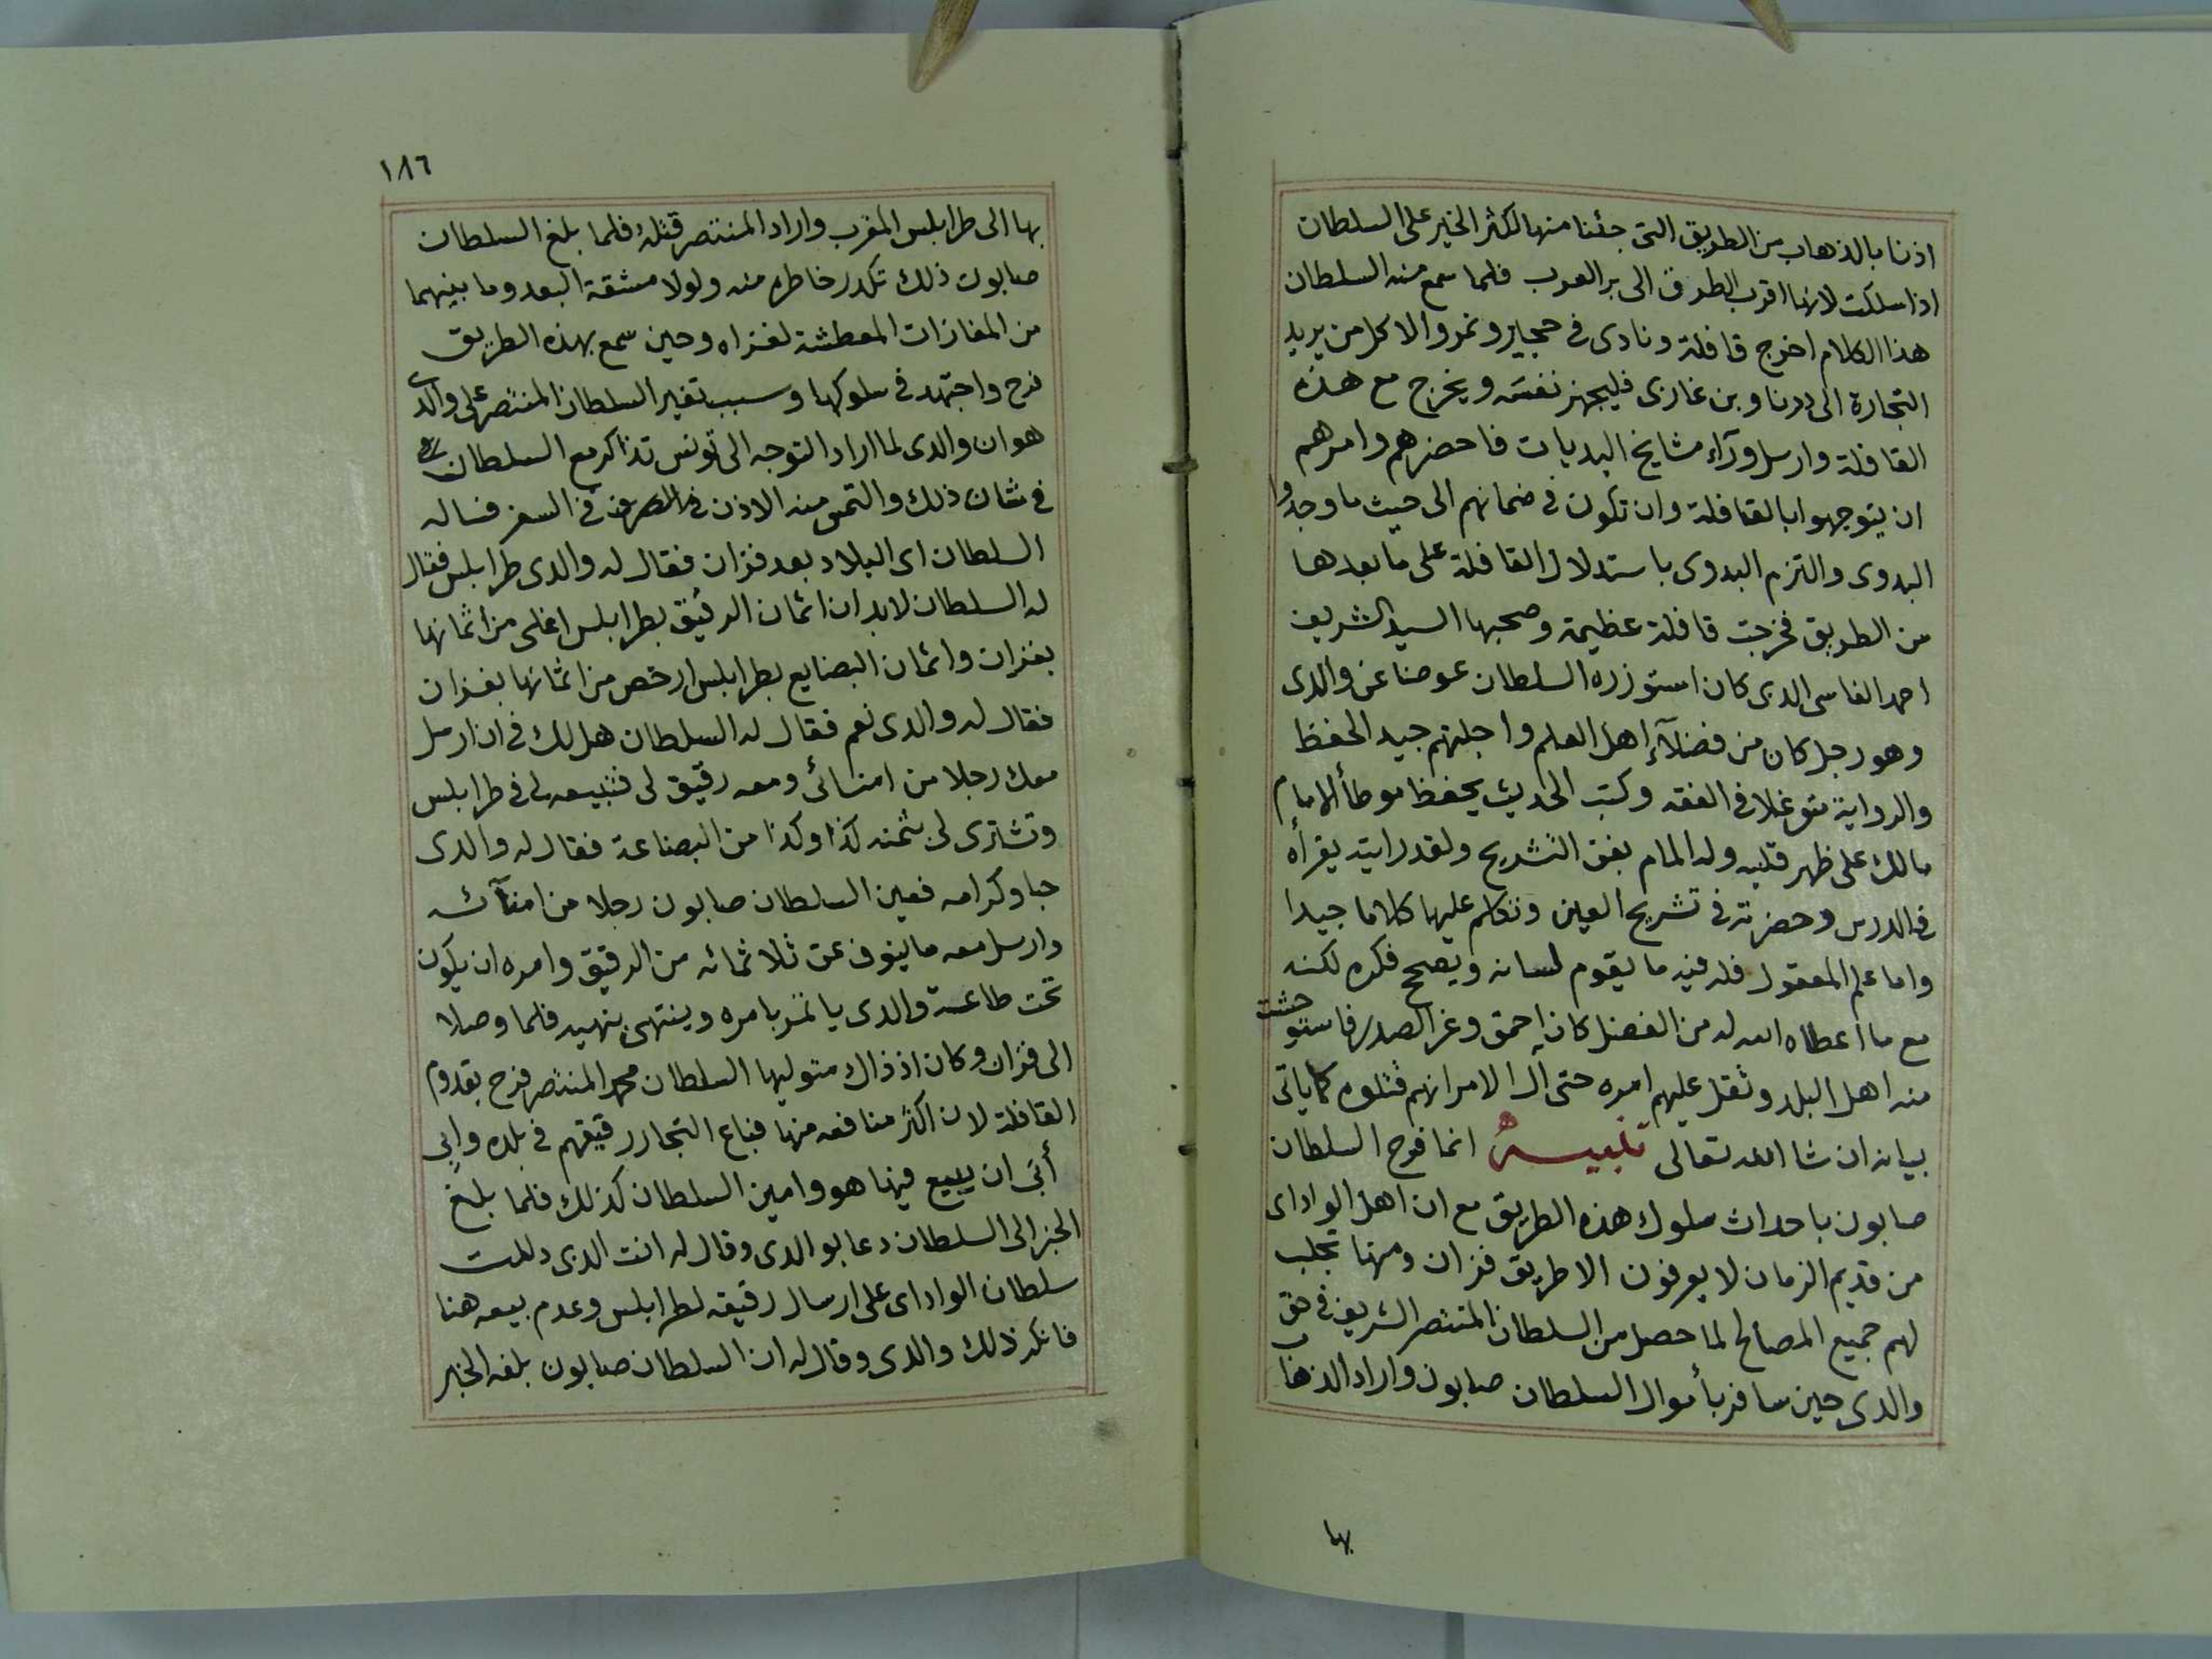 اذنا بالذهاب من الطريق التى جئنا منها لكثر الخير على السلطان
اذا سلكت لانها اقرب الطرق الى بر العرب فلما سمع منه السلطان
هذا الكلام اخرج قافلة ونادى فى حجاير ونمرو الا كل من يريد
التجارة الى درنا وبن غازى فليجهز نفسه ويخرج مع هذه
القافلة وارسل ورآء مشايخ البديات فاحضرهم وامرهم
ان يتوجهوا بالقافلة وان تكون فى ضمانهم الى حيث ما وجدوا
البدوى والتزم البدوى باستدلال القافلة على ما بعدها
من الطريق فخرجت قافلة عظيمة وصحبها السيد الشريف
احمد الفاسى الدى كان استوزره السلطان عوضا عن والدى
وهو رجل كان من فضلآء اهل العلم واجلتهم جيد الحفظ
والرواية متوغلا فى الفقه وكتب الحديث يحفظ موطأ الامام
مالك على ظهر قلبه وله المام بفن التشريح ولقد رايته يقرأه
فى الدرس وحضرته فى تشريح العين وتكلم عليها كلاما جيدا
واما علم المعقول فله فيه ما يقوم لسانه ويصحح فكره لكنه
مع ما اعطاه الله له من الفضل كان احمق وغر الصدر فاستوحشت
منه اهل البلد وثقل عليهم امره حتى آل الامر انهم قتلوه كما ياتى
بيانه ان شا الله تعالى تنبيه انما فرح السلطان
صابون باحداث سلوك هذه الطريق مع ان اهل الواداى
من قديم الزمان لا يعرفون الا طريق فزان ومنها تجلب
لهم جميع المصالح لما حصل من السلطان المنتصر الشريف فى حق
والدى حين سافر بأموال السلطان صابون واراد الذهاب
بها
١٨٦
بها الى طرابلس المغرب واراد المنتصر قتله فلما بلغ السلطان
صابون ذلك تكدر خاطره منه ولولا مشقة البعد وما بينهما
من المفازات المعطشة لغزاه وحين سمع بهذه الطريق
فرح واجتهد فى سلوكها وسبب تغير السلطان المنتصر على والدى
هو ان والدى لما اراد التوجه الى تونس تذاكر مع السلطان
فى شان ذلك والتمس منه الاذن فى السفر فساله
السلطان اى البلاد بعد فزان فقال له والدى طرابلس فقال
له السلطان لابد ان اثمان الرقيق بطرابلس اغلى من اثمانها
بفزان واثمان البضايع بطرابلس ارخص من اثمانها بفزان
فقال له والدى نعم فقال له السلطان هل لك فى ان ارسل
معك رجلا من امنائى ومعه رقيق لى فتبيعه لى فى طرابلس
وتشترى لى بثمنه كذا وكذا من البضاعة فقال له والدى
حبا وكرامه فعين السلطان صابون رجلا من امنآئه
وارسل معه ما ينوف عن ثلاثمائه من الرقيق وامره ان يكون
تحت طاعة والدى ياتمر بامره وينتهى بنهيه فلما وصلا
الى فزان وكان اذ ذاك متوليها السلطان محمد المنتصر فرح بقدوم
القافلة لان اكثر منافعه منها فباع التجار رقيقهم فى بلده وابى
أبى ان يبيع فيها هو وامين السلطان كذلك فلما بلغ
الخبر الى السلطان دعا بوالدى وقال له انت الدى دللت
سلطان الواداى على ارسال رقيقه لطرابلس وعدم بيعه هنا
فانكر ذلك والدى وقال له ان السلطان صابون بلغه الخبر